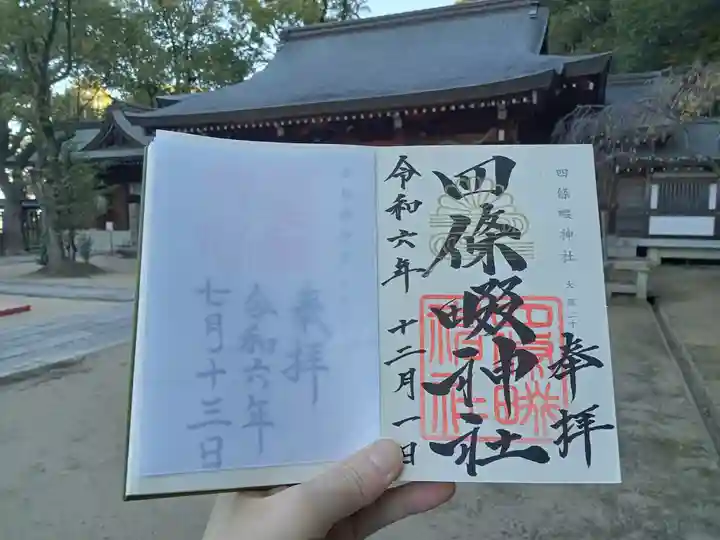 四條畷神社
大阪二十
奉拝
四條畷神社
令和六年 十二月一日
奉拝
令和六年
七月十三日